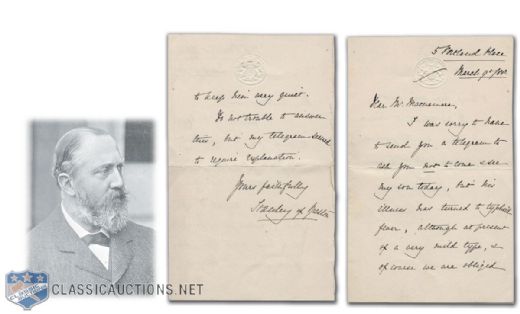 5 Portland Place
March 9th
Dear Mr. Macnamara,
I was sorry to have
to send you a telegram to
ask you not to come & see
my son today, but his
illness has turned to typhoid
fever, although at present
of a very mild type, &
of course we are obliged
to keep him very quiet.
Do not trouble to answer
this, but my telegram
to require explanation.
Yours faithfully
Stanley of Preston
CLASSICAUCTIONS.NET